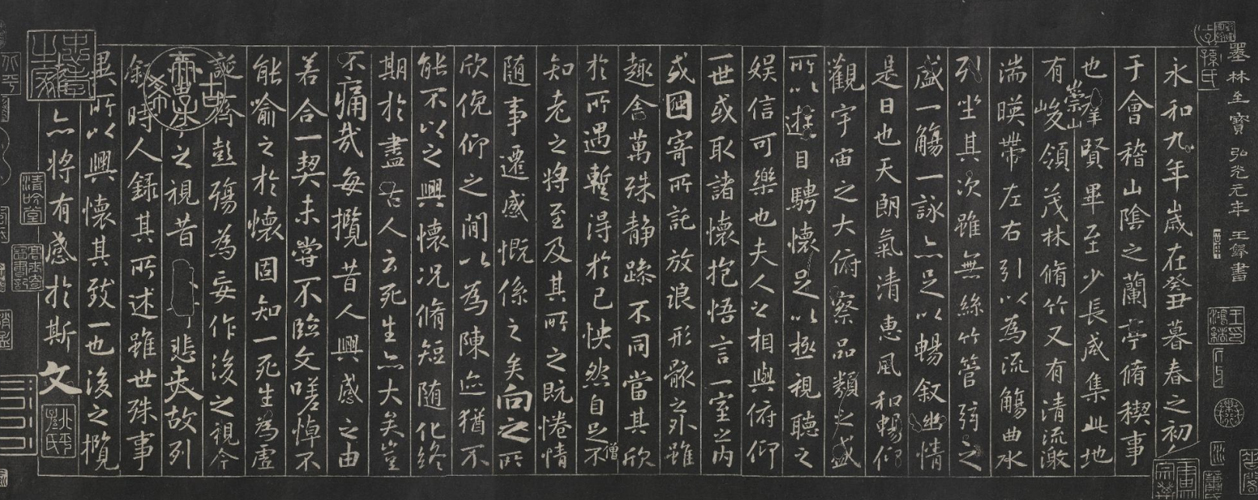 墨林至寶 弘光元年 王鐸書
永和九年歲在癸丑暮春之初
于會稽山陰之蘭亭脩稧事
也群賢畢至少長咸集此地
有崇山峻領茂林脩竹又有清流激
湍暎帶左右引以為流觴曲水
列坐其次雖無絲竹管弦之
盛一觴一詠亦足以暢叙幽情
是日也天朗氣清惠風和暢仰
觀宇宙之大俯察品類之盛
所以遊目騁懷足以極視聽之
娛信可樂也夫人之相與俯仰
一世或取諸懷抱悟言一室之內
或因寄所託放浪形骸之外雖
趣舍萬殊静躁不同當其欣
於所遇蹔得於己怏然自足不
僧
知老之將至及其所之既惓情
随事遷感慨係之矣向之所
欣俛仰之閒以為陳迹猶不
能不以之興懷況脩短随化終
期於盡古人云死生亦大矣豈
不痛哉每攬昔人興感之由
若合一契未嘗不臨文嗟悼不
能喻之於懷固知一死生為虛
誕齊彭殤為妄作後之視今
亦由今之視昔悲夫故列
叙時人錄其所述雖世殊事
異所以興懷其致一也後之攬
者亦將有感於斯文